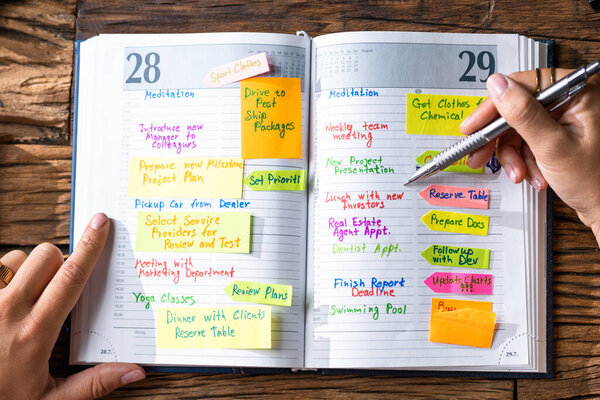 28
Sport Clothes
Meditation
Drive to
Post
Ship
Packages
Introduce new
Manager to
Colleagues
Prepare new Milestone
Project Plan
Set Prioriti
Pickup Car from Dealer
Select Service
Providers for
Review and Test
Meeting with
Marketing Department
Review Plans
Yoga Classes
Dinner with Clients
Reserve Table
28.7.
August
29
Meditation
Get Clothes f
Chemical
Weekly team
meeting
New Project
Presentation
Lunch with new
Investors
Reserve Table
Real Estate
Agent Appt.
Prepare Docs
Dentist Appt.
Followup
with Dev
Finish Report
Deadline
Update Charts
!!!
Swimming Pool
29.7.